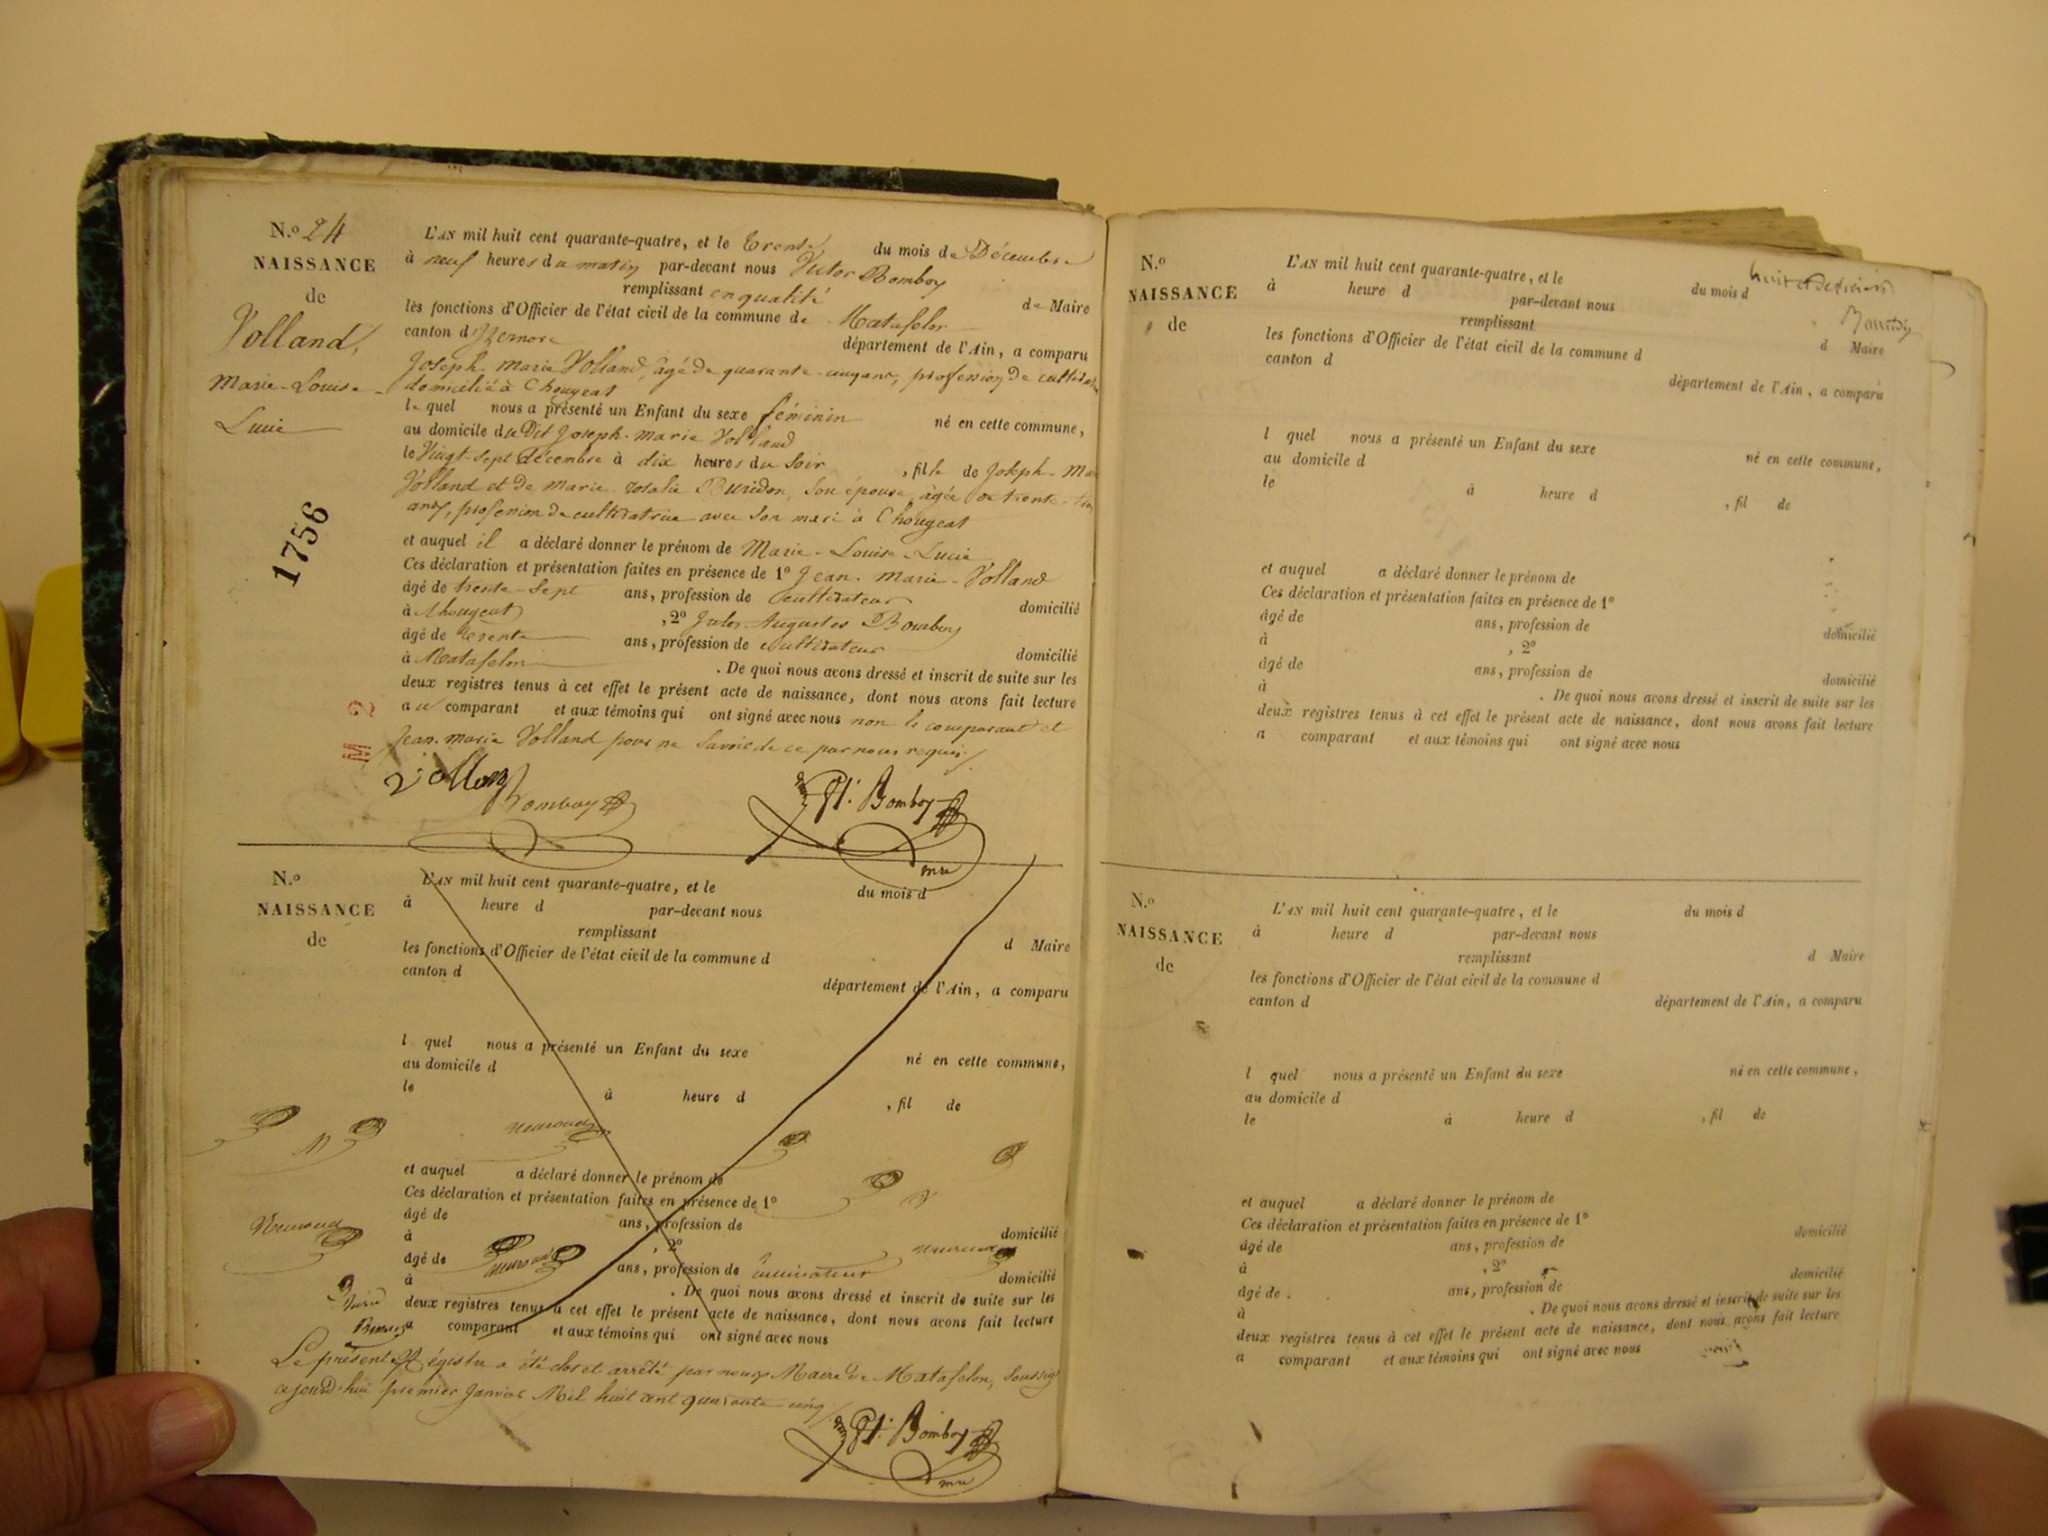 N.º 24
NAISSANCE
de
Volland,
Marie-Louise-
Lucie
1756
M 2
L'AN mil huit cent quarante-quatre, et le trente du mois de Décembre
à neuf heures du matin par-devant nous Victor Bomboy
remplissant en qualité de Maire
les fonctions d'Officier de l'état civil de la commune de Matafelon
canton d'Izernore département de l'Ain, a comparu
Joseph-Marie Volland, âgé de quarante-cinq ans, profession de cultivateur
domicilié à Chougeat
lequel nous a présenté un Enfant du sexe féminin né en cette commune,
au domicile du Dit Joseph-marie Volland
le Vingt-sept décembre à dix heures du Soir , fille de Joseph-Mar
Volland et de Marie-rosalie Buridon, son épouse, âgée de trente-
ans, profession de cultivatrice avec son mari à Chougeat
et auquel il a déclaré donner le prénom de Marie-Louise-Lucie
Ces déclaration et présentation faites en présence de 1º Jean-Marie-Volland
âgé de trente-sept ans, profession de cultivateur domicilié
à Chougeat , 2º Jules-Augustes Bomboy
âgé de trente ans, profession de cultivateur domicilié
à Matafelon . De quoi nous avons dressé et inscrit de suite sur les
deux registres tenus à cet effet le présent acte de naissance, dont nous avons fait lecture
au comparant et aux témoins qui ont signé avec nous non le comparant et
Jean-marie Volland pour ne savoir de ce par nous requis
Vollan
Bomboy
Pt. Bomboy
mre
N.º
NAISSANCE
de
L'AN mil huit cent quarante-quatre, et le du mois d
à heure d par-devant nous
remplissant d Maire
les fonctions d'Officier de l'état civil de la commune d
canton d département de l'Ain, a comparu
l quel nous a présenté un Enfant du sexe né en cette commune,
au domicile d
le à heure d , fil de
et auquel a déclaré donner le prénom de
Ces déclaration et présentation faites en présence de 1º
âgé de ans, profession de domicilié
à , 2º
âgé de ans, profession de domicilié
à . De quoi nous avons dressé et inscrit de suite sur les
deux registres tenus à cet effet le présent acte de naissance, dont nous avons fait lecture
a comparant et aux témoins qui ont signé avec nous
Le présent Régistre a été clos et arrêté par nous Maire de Matafelon, Soussig
aujourd'hui premier Janvier Mil huit cent quarante cinq
Pt. Bomboy
mre
N.º
NAISSANCE
de
L'AN mil huit cent quarante-quatre, et le du mois d
à heure d par-devant nous
remplissant d Maire
les fonctions d'Officier de l'état civil de la commune d
canton d département de l'Ain, a comparu
l quel nous a présenté un Enfant du sexe né en cette commune,
au domicile d
le à heure d , fil de
et auquel a déclaré donner le prénom de
Ces déclaration et présentation faites en présence de 1º
âgé de ans, profession de domicilié
à , 2º
âgé de ans, profession de domicilié
à . De quoi nous avons dressé et inscrit de suite sur les
deux registres tenus à cet effet le présent acte de naissance, dont nous avons fait lecture
a comparant et aux témoins qui ont signé avec nous
N.º
NAISSANCE
de
L'AN mil huit cent quarante-quatre, et le du mois d
à heure d par-devant nous
remplissant d Maire
les fonctions d'Officier de l'état civil de la commune d
canton d département de l'Ain, a comparu
l quel nous a présenté un Enfant du sexe né en cette commune,
au domicile d
le à heure d , fil de
et auquel a déclaré donner le prénom de
Ces déclaration et présentation faites en présence de 1º
âgé de ans, profession de domicilié
à , 2º
âgé de ans, profession de domicilié
à . De quoi nous avons dressé et inscrit de suite sur les
deux registres tenus à cet effet le présent acte de naissance, dont nous avons fait lecture
a comparant et aux témoins qui ont signé avec nous